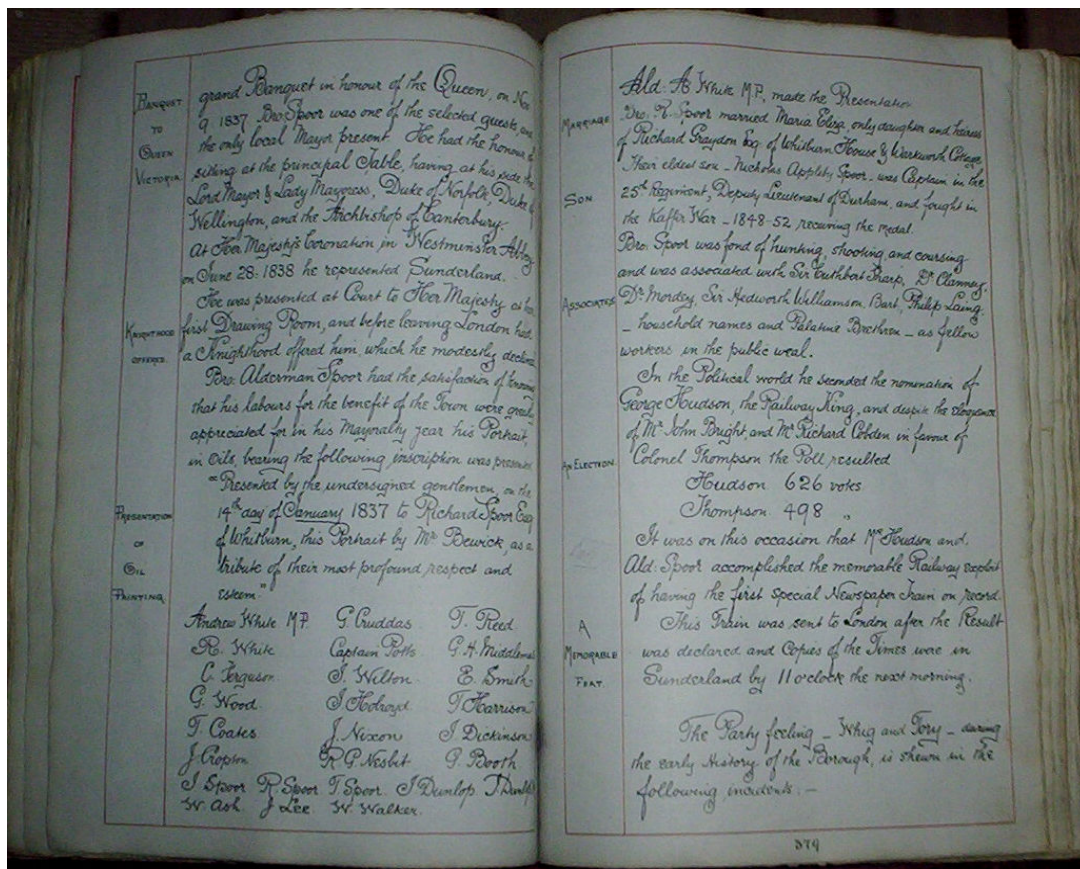 BANQUET
TO
QUEEN
VICTORIA
grand Banquet in honour of the Queen, on Nov
9. 1837 Bro: Spoor was one of the selected guests, and
the only local Mayor present He had the honour of
sitting at the principal Table, having at his side the
Lord Mayor & Lady Mayoress, Duke of Norfolk, Duke of
Wellington, and the Archbishop of Canterbury.
At Her Majesty's Coronation in Westminster Abbey
on June 28. 1838 he represented Sunderland.
He was presented at Court to Her Majesty at her
KNIGHTHOOD
OFFERED.
first Drawing Room, and before leaving London had
a Knighthood offered him, which he modestly declined
Bro: Alderman Spoor had the satisfaction of knowing
that his labours for the benefit of the Town were greatly
appreciated for in his Mayoralty year his Portrait
in Oils, bearing the following inscription was presented
PRESENTATION
OF
OIL
PAINTING.
"Presented by the undersigned gentlemen, on the
14th day of January 1837 to Richard Spoor Esq
of Whitburn, this Portrait by Mr Bewick, as a
tribute of their most profound respect and
esteem."
Andrew White M.P. G. Cruddas T. Reed
R. White Captain Potts G. H. Middlemas
C. Ferguson J. Wilton E. Smith
G. Wood. J. Holroyd T. Harrison
T. Coates J. Nixon J. Dickinson
J. Cropton R G Nesbit G. Booth
J Spoor R. Spoor T. Spoor. J Dunlop. T. Dunlop
W. Ash. J Lee. W. Walker.
Ald: A White M.P., made the Presentation
MARRIAGE
Bro: R. Spoor married Maria Eliza, only daughter and heiress
of Richard Graydon Esq. of Whitburn House & Warkworth Cottage
Their eldest son - Nicholas Appleby Spoor - was Captain in the
SON
25th Regiment, Deputy Lieutenant of Durham, and fought in
the Kaffir War - 1848-52 receiving the medal.
Bro: Spoor was fond of hunting, shooting and coursing
and was associated with Sir Cuthbert Sharp, Dr Clanney,
ASSOCIATES
Dr Mordey, Sir Hedworth Williamson. Bart, Philip Laing
- household names and Palatine Brethren - as fellow
workers in the public weal.
In the Political world he seconded the nomination of
George Hudson, the Railway King, and despite the eloquence
of Mr John Bright, and Mr Richard Cobden in favour of
AN ELECTION.
Colonel Thompson the Poll resulted
Hudson 626 votes
Thompson 498 "
It was on this occasion that Mr Hudson and
Ald: Spoor accomplished the memorable Railway exploit
of having the first special Newspaper Train on record.
A
MEMORABLE
FEAT.
This Train was sent to London after the Result
was declared and Copies of the Times were in
Sunderland by 11 o'clock the next morning.
The Party feeling - Whig and Tory - during
the early History of the Borough, is shewn in the
following incidents: -
379